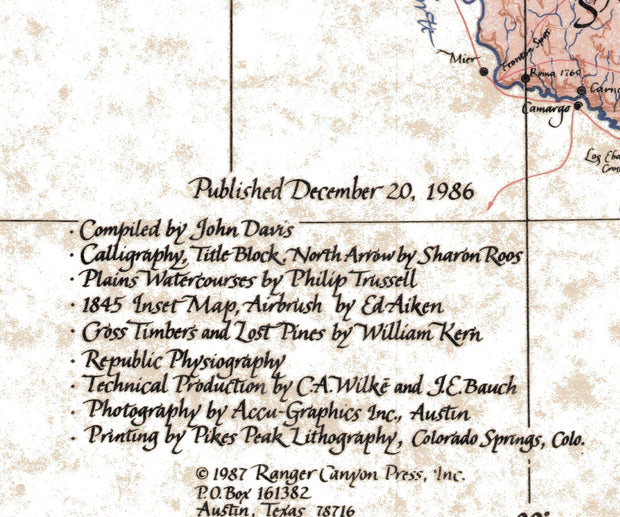 Mier
Frontón Spgs
Roma 1765
Camargo
Published December 20, 1986
· Compiled by John Davis
· Calligraphy, Title Block, North Arrow by Sharon Roos
· Plains Watercourses by Philip Trussell
· 1845 Inset Map, Airbrush by Ed Aiken
· Cross Timbers and Lost Pines by William Kern
· Republic Physiography
· Technical Production by C.A. Wilkē and J.E. Bauch
· Photography by Accu-Graphics Inc., Austin
· Printing by Pikes Peak Lithography, Colorado Springs, Colo.
© 1987 Ranger Canyon Press, Inc.
P.O. Box 161382
Austin, Texas 78716